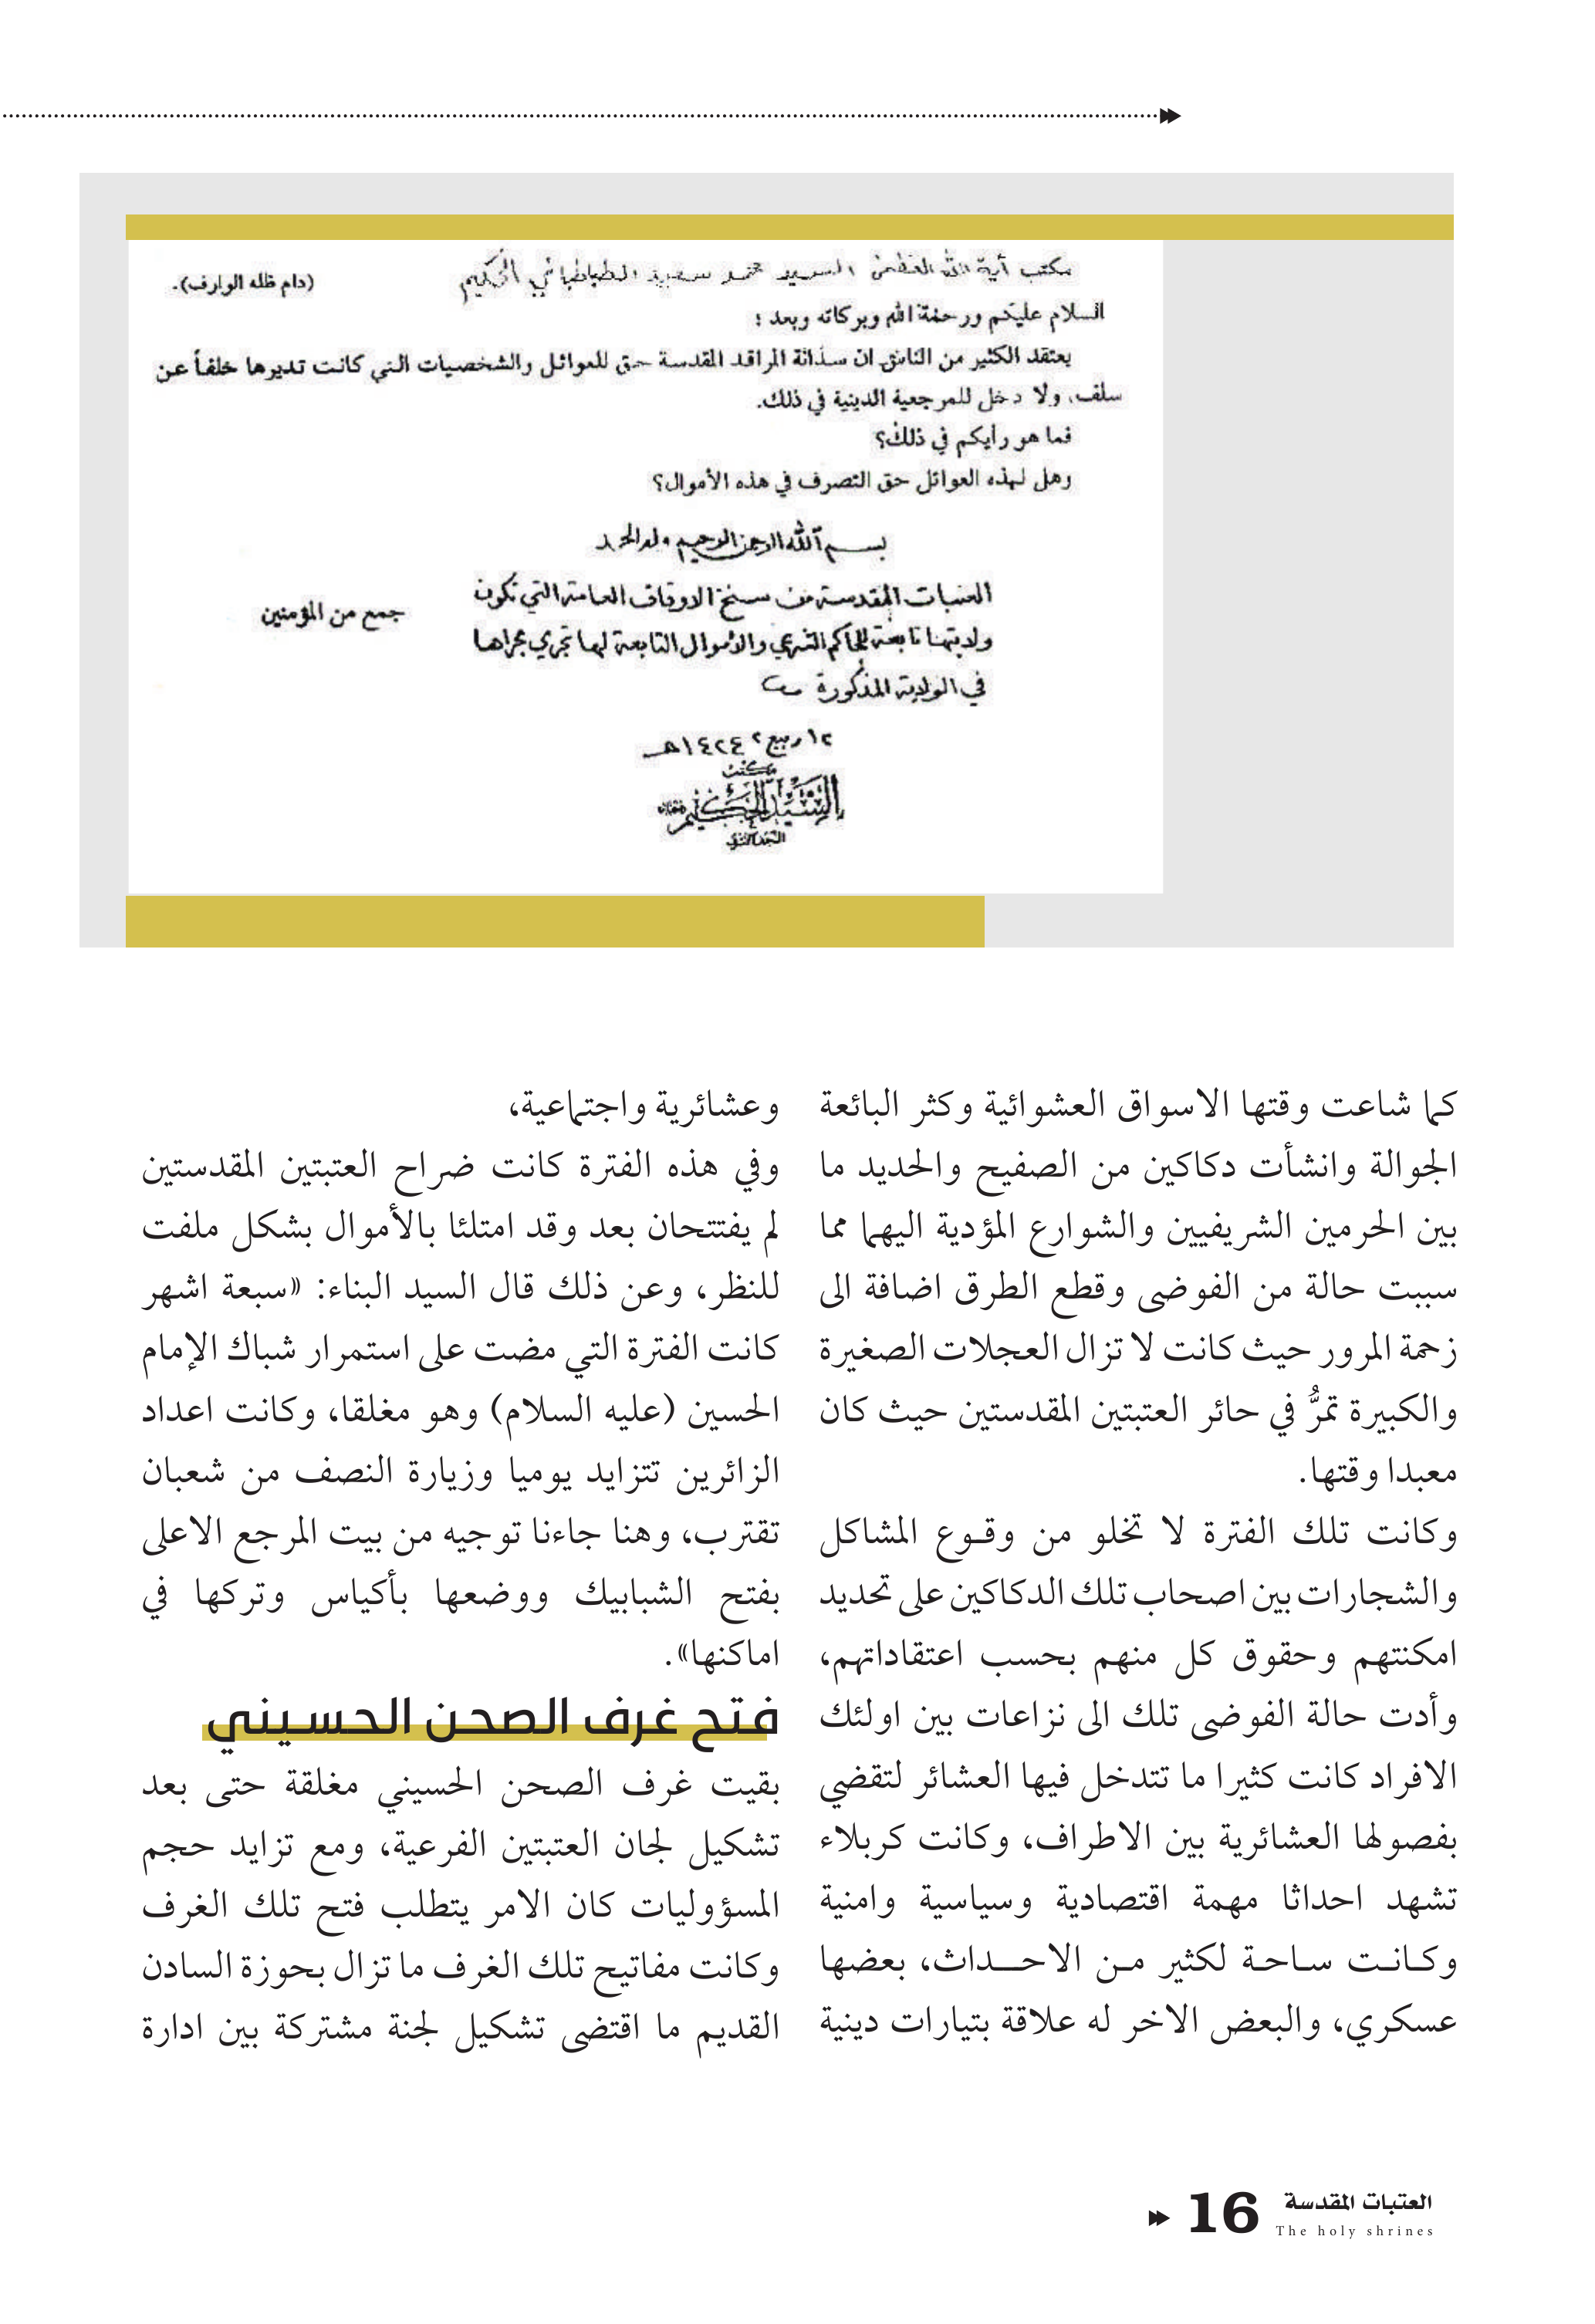 مكتب آية الله العظمى السيد محمد سعيد الطباطبائي الحكيم (دام ظله الوارف).
السلام عليكم ورحمة الله وبركاته وبعد ؛
يعتقد الكثير من الناس ان سدانة المراقد المقدسة حق للعوائل والشخصيات التي كانت تديرها خلفاً عن
سلف، ولا دخل للمرجعية الدينية في ذلك.
فما هو رأيكم في ذلك؟
وهل لهذه العوائل حق التصرف في هذه الأموال؟
جمع من المؤمنين
بسم الله الرحمن الرحيم وله الحمد
العتبات المقدسة من سنخ الاوقاف العامة التي تكون
ولايتها تابعة للحاكم الشرعي والأموال التابعة لها تجري مجراها
في الولاية المذكورة
١٢ ربيع ٢ ١٤٢٤هـ
مكتب
السيد الحكيم
النجف الأشرف
كما شاعت وقتها الاسواق العشوائية وكثر البائعة
الجوالة وانشأت دكاكين من الصفيح والحديد ما
بين الحرمين الشريفيين والشوارع المؤدية اليهما مما
سببت حالة من الفوضى وقطع الطرق اضافة الى
زحمة المرور حيث كانت لا تزال العجلات الصغيرة
والكبيرة تمرُّ في حائر العتبتين المقدستين حيث كان
معبدا وقتها.
وكانت تلك الفترة لا تخلو من وقوع المشاكل
والشجارات بين اصحاب تلك الدكاكين على تحديد
امكنتهم وحقوق كل منهم بحسب اعتقاداتهم،
وأدت حالة الفوضى تلك الى نزاعات بين اولئك
الافراد كانت كثيرا ما تتدخل فيها العشائر لتقضي
بفصولها العشائرية بين الاطراف، وكانت كربلاء
تشهد احداثا مهمة اقتصادية وسياسية وامنية
وكانت ساحة لكثير من الاحداث، بعضها
عسكري، والبعض الاخر له علاقة بتيارات دينية
وعشائرية واجتماعية،
وفي هذه الفترة كانت ضراح العتبتين المقدستين
لم يفتتحان بعد وقد امتلئا بالأموال بشكل ملفت
للنظر، وعن ذلك قال السيد البناء: «سبعة اشهر
كانت الفترة التي مضت على استمرار شباك الإمام
الحسين (عليه السلام) وهو مغلقا، وكانت اعداد
الزائرين تتزايد يوميا وزيارة النصف من شعبان
تقترب، وهنا جاءنا توجيه من بيت المرجع الاعلى
بفتح الشبابيك ووضعها بأكياس وتركها في
اماكنها».
فتح غرف الصحن الحسيني
بقيت غرف الصحن الحسيني مغلقة حتى بعد
تشكيل لجان العتبتين الفرعية، ومع تزايد حجم
المسؤوليات كان الامر يتطلب فتح تلك الغرف
وكانت مفاتيح تلك الغرف ما تزال بحوزة السادن
القديم ما اقتضى تشكيل لجنة مشتركة بين ادارة
العتبات المقدسة
The holy shrines
16